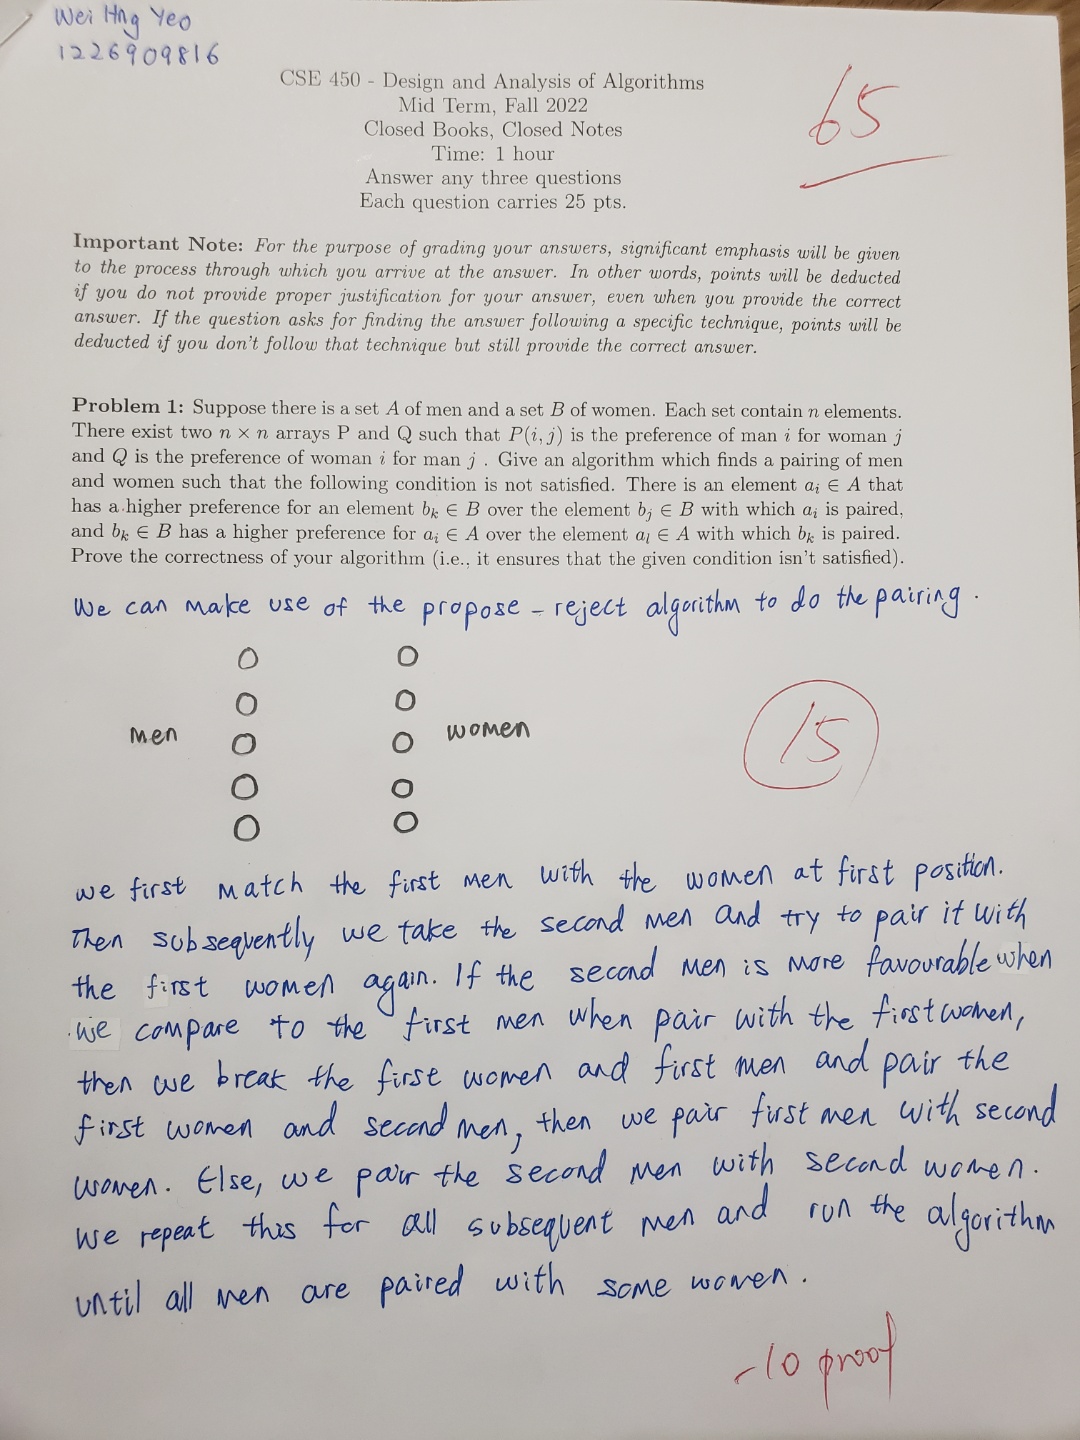 Wei Hng Yeo
1226909816
CSE 450 - Design and Analysis of Algorithms
Mid Term, Fall 2022
Closed Books, Closed Notes
Time: 1 hour
Answer any three questions
Each question carries 25 pts.
65
Important Note: For the purpose of grading your answers, significant emphasis will be given
to the process through which you arrive at the answer. In other words, points will be deducted
if you do not provide proper justification for your answer, even when you provide the correct
answer. If the question asks for finding the answer following a specific technique, points will be
deducted if you don't follow that technique but still provide the correct answer.
Problem 1: Suppose there is a set A of men and a set B of women. Each set contain n elements.
There exist two n × n arrays P and Q such that P(i, j) is the preference of man i for woman j
and Q is the preference of woman i for man j . Give an algorithm which finds a pairing of men
and women such that the following condition is not satisfied. There is an element aᵢ ∈ A that
has a higher preference for an element bₖ ∈ B over the element bⱼ ∈ B with which aᵢ is paired,
and bₖ ∈ B has a higher preference for aᵢ ∈ A over the element aₗ ∈ A with which bₖ is paired.
Prove the correctness of your algorithm (i.e., it ensures that the given condition isn't satisfied).
We can make use of the propose - reject algorithm to do the pairing.
men
women
15
we first match the first men with the women at first position.
Then subsequently we take the second men and try to pair it with
the first women again. If the second men is more favourable when
we compare to the first men when pair with the first women,
then we break the first women and first men and pair the
first women and second men, then we pair first men with second
women. Else, we pair the second men with second women.
we repeat this for all subsequent men and run the algorithm
until all men are paired with some women.
-10 proof